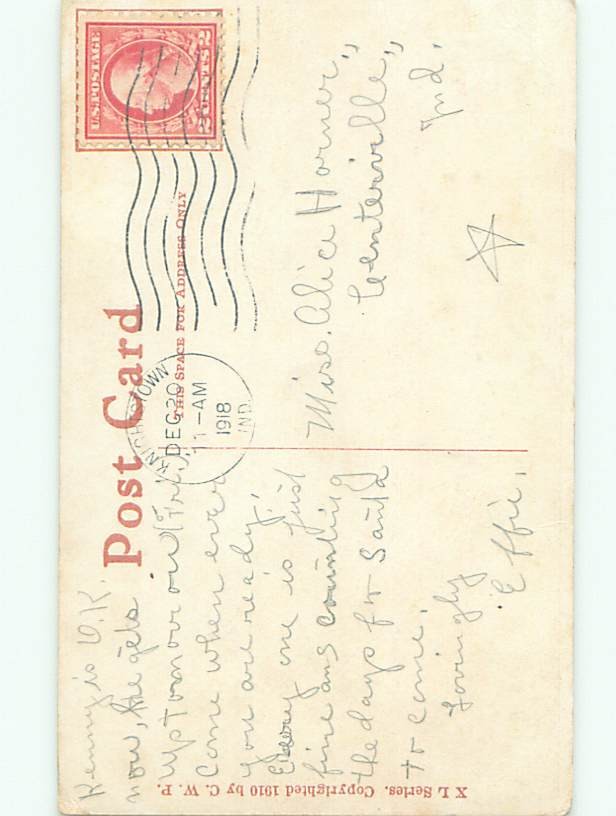 U.S. POSTAGE
2 CENTS 2
Post Card
THIS SPACE FOR ADDRESS ONLY
KNIGHTSTOWN
DEC 20
1-AM
1918
IND.
Henry is O.K.
now, he gets
up tomorrow (Fri.)
Come when ever
you are ready.
Every one is just
fine and counting
the days for Santa
to come.
Lovingly
Effie.
Miss. Alice Horner,
Centerville,
Ind.
X L Series. Copyrighted 1910 by C. W. P.